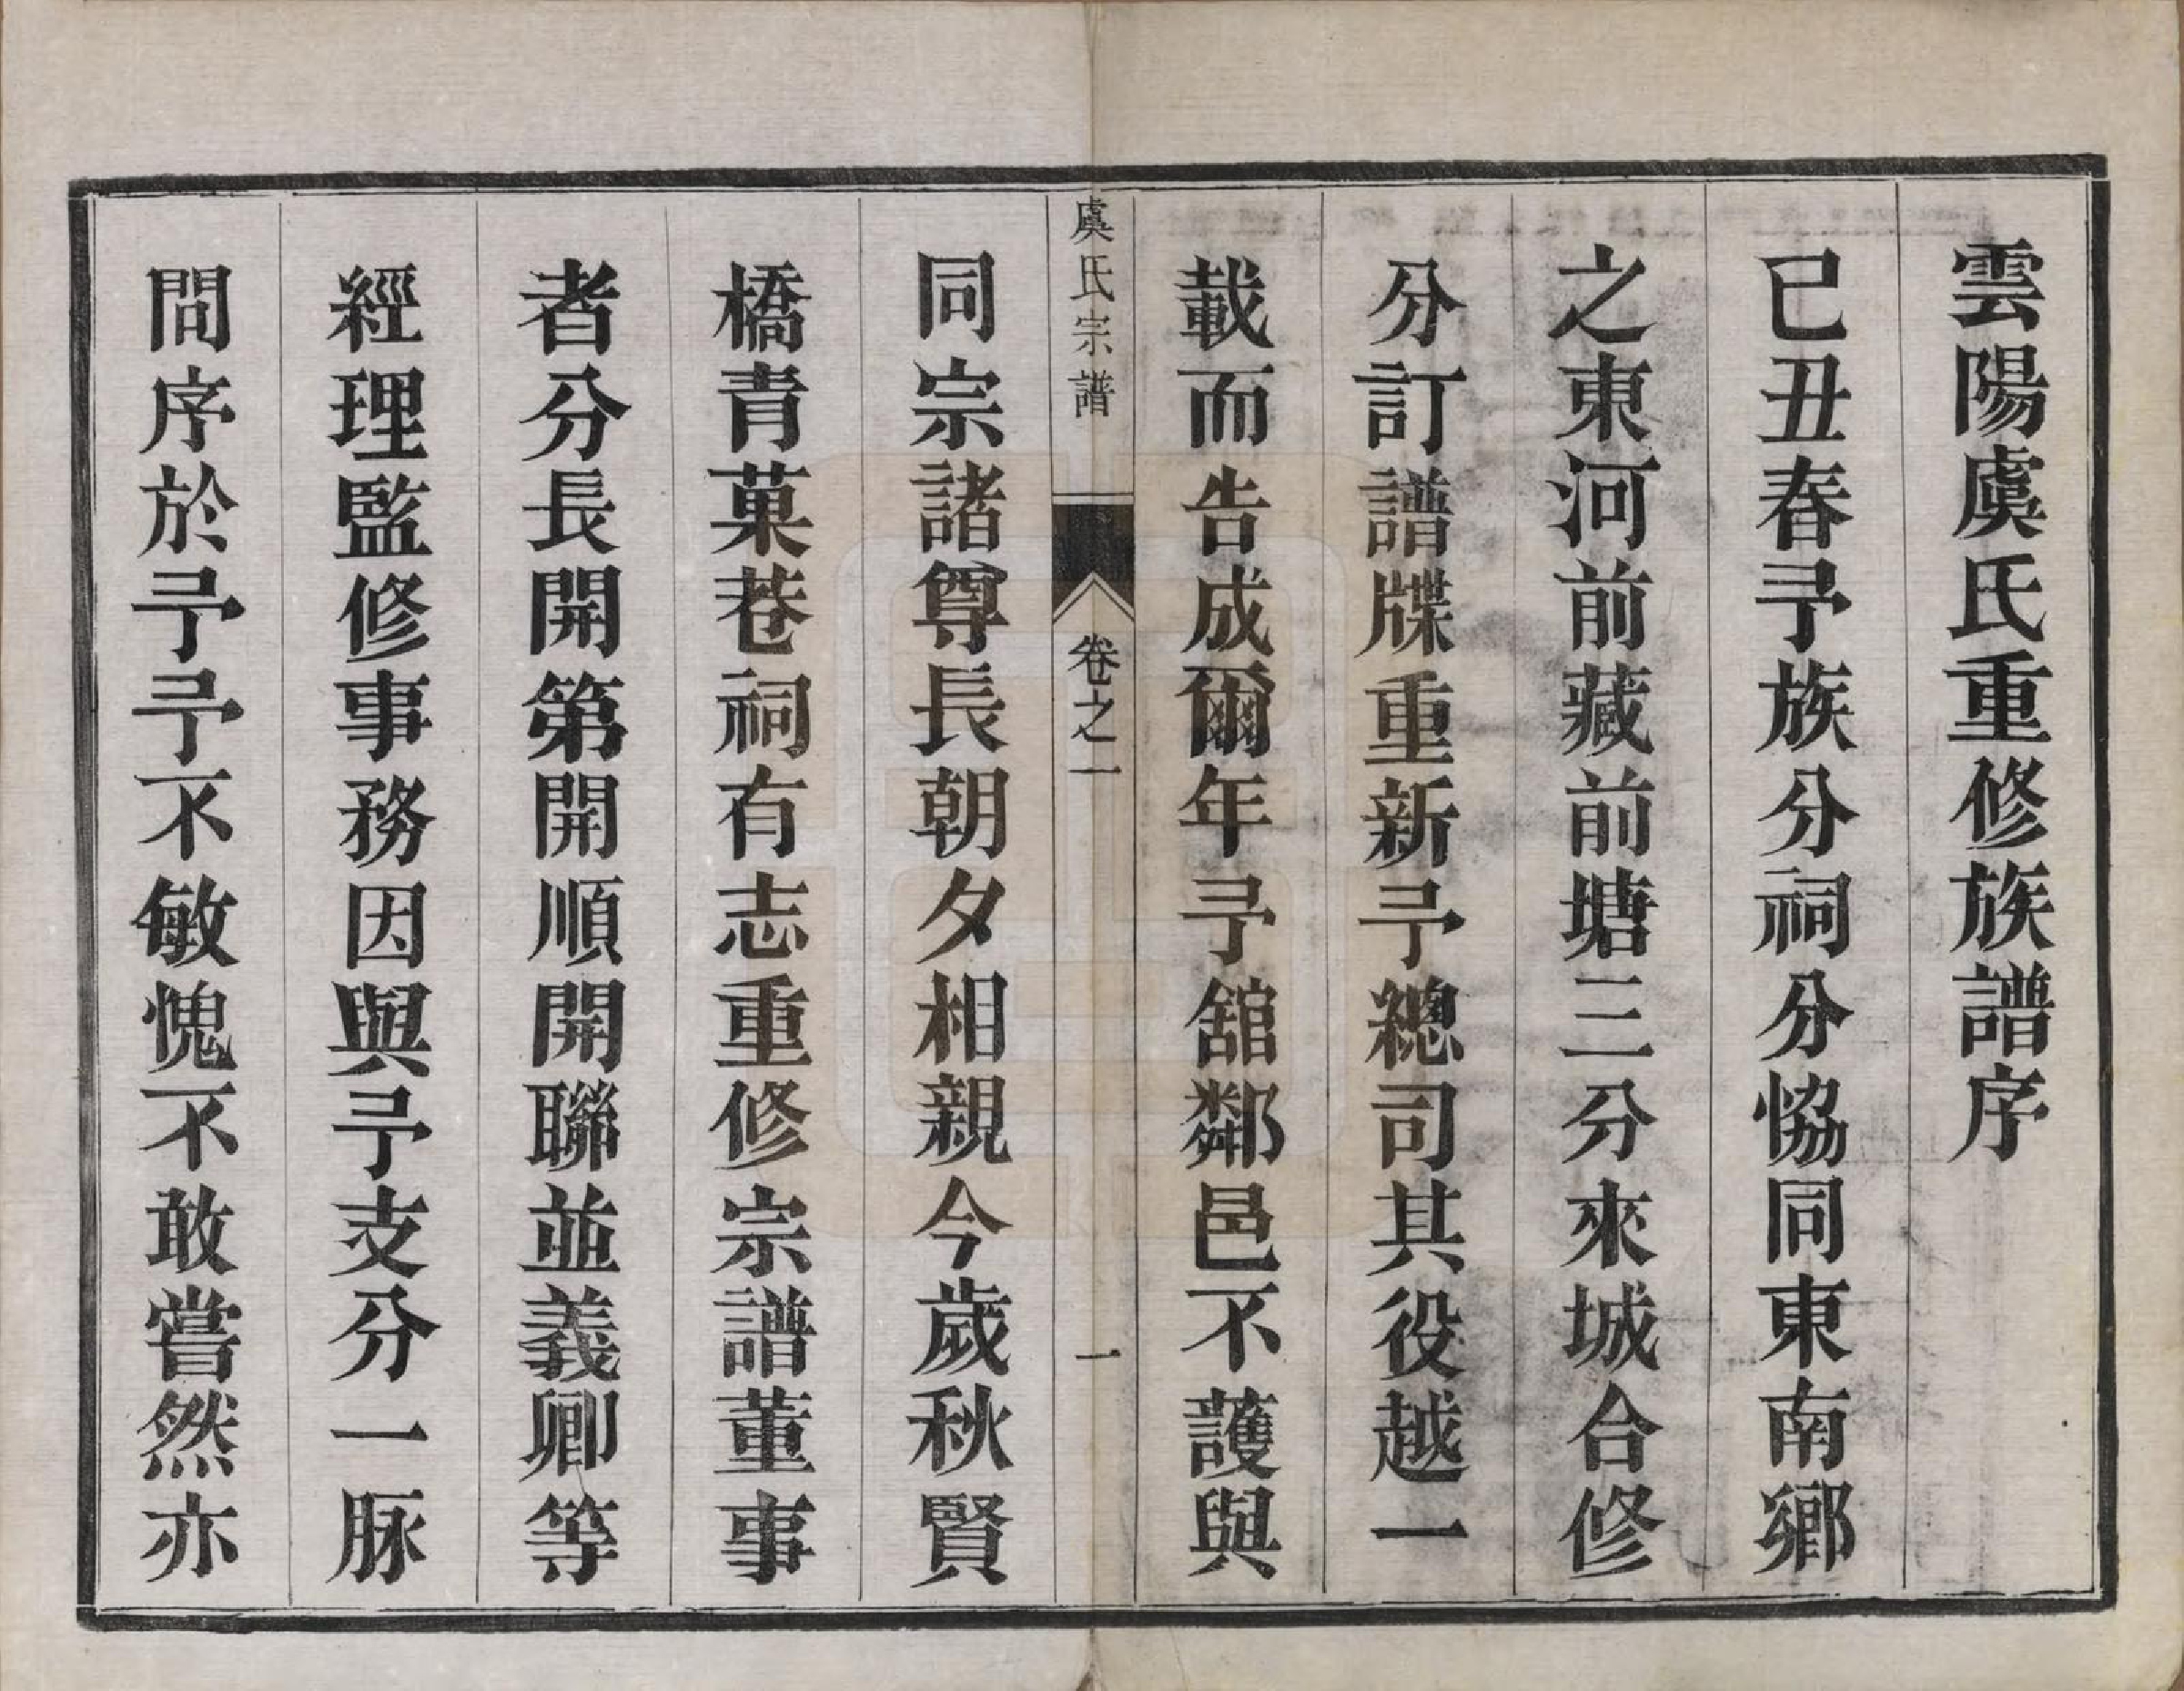 雲陽虞氏重修族譜序
己丑春予族分祠分恊同東南鄉
之東河前藏前塘三分來城合修
分訂譜牒重新予總司其役越一
載而告成爾年予舘鄰邑不護與
虞氏宗譜 卷之一 一
同宗諸尊長朝夕相親今歲秋賢
橋青菓巷祠有志重修宗譜董事
者分長開第開順開聯並義卿等
經理監修事務因與予支分一脉
問序於予予不敏愧不敢嘗然亦